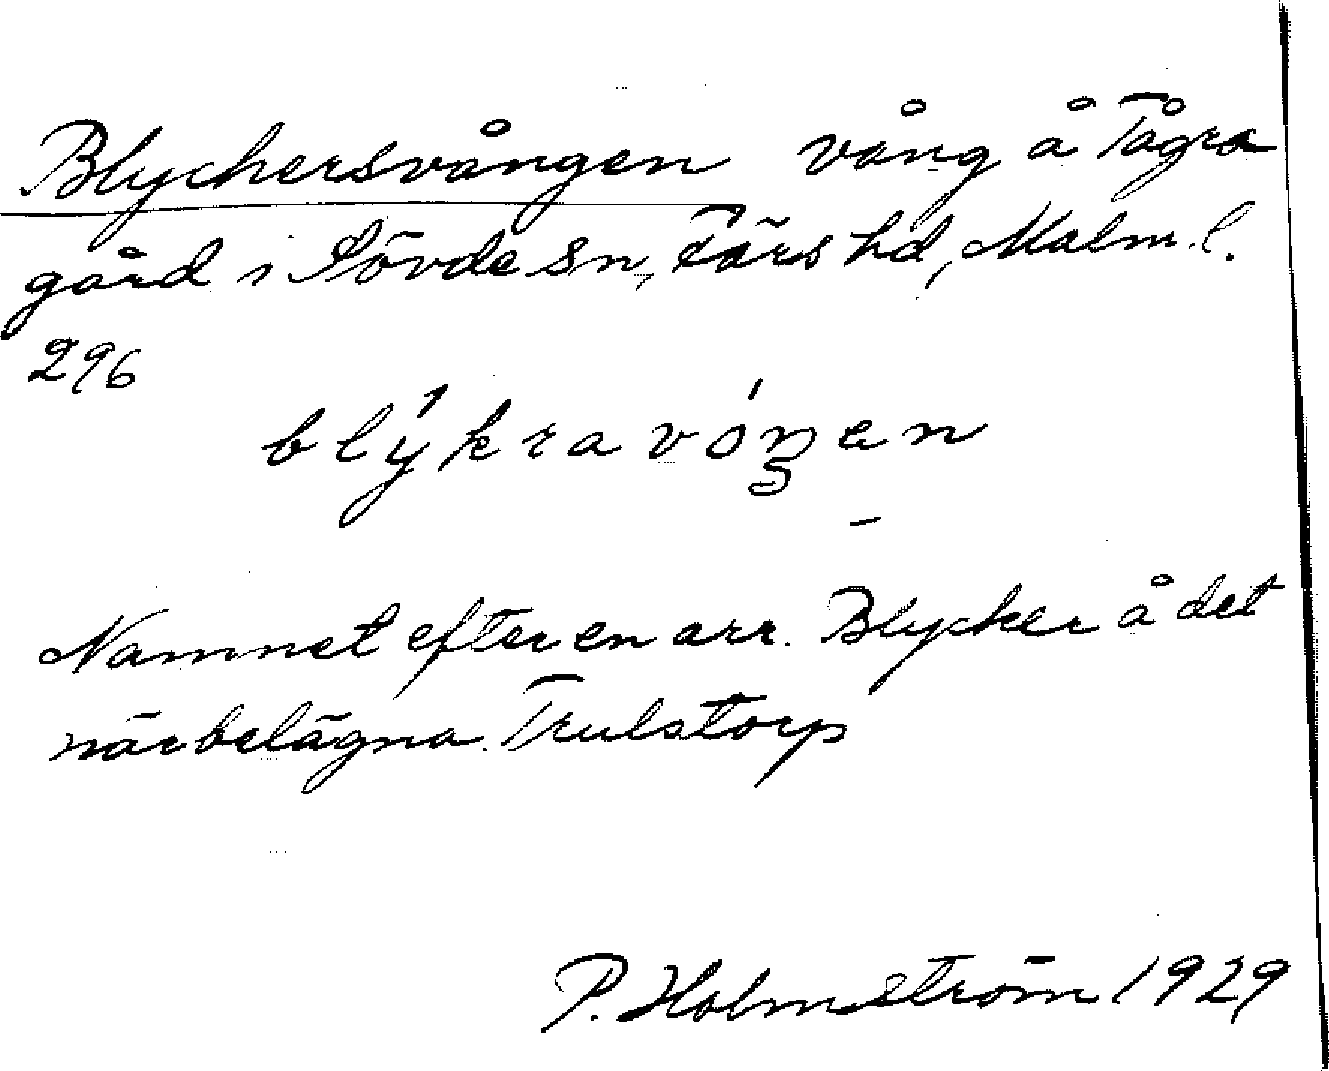 Blychersvången vång å Tågra
gård i Sövde sn, Färs hd, Malm. l.
296
blýkravóŋen
Namnet efter en arr. Blycker å det
närbelägna Trulstorp
P. Holmström 1929